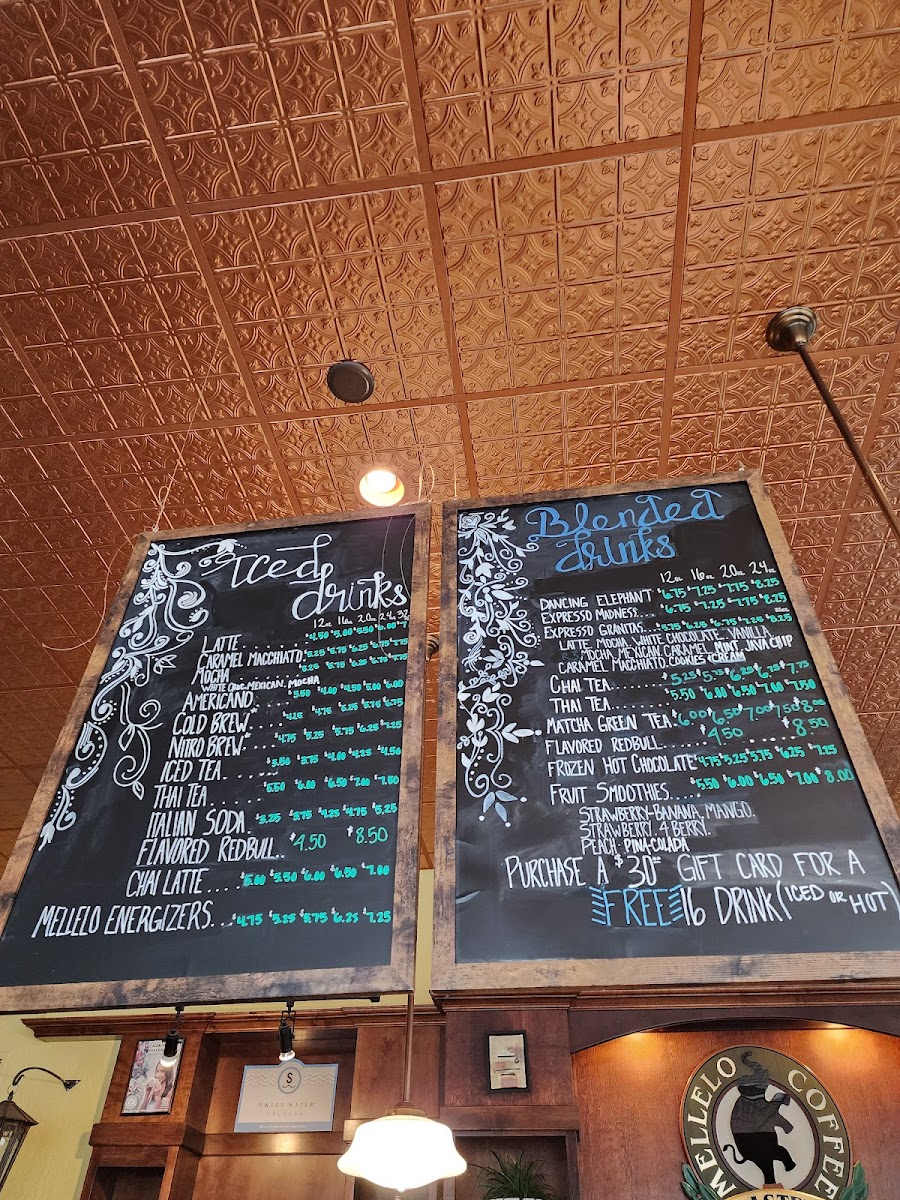 Iced
drinks
12oz 16oz 20oz 24oz 32
LATTE $4.50 $5.00 $5.50 $6.00
CARAMEL MACCHIATO $5.25 $5.75 $6.25 $6.75 $7.75
MOCHA $5.25 $5.75 $6.25 $6.75 $7.75
WHITE CHOC, MEXICAN, MOCHA
AMERICANO $3.50 $4.00 $4.50 $5.00 $6.00
COLD BREW $4.25 $4.75 $5.25 $5.75 $6.75
NITRO BREW $4.75 $5.25 $5.75 $6.25 $7.25
ICED TEA $3.50 $3.75 $4.00 $4.25 $4.50
THAI TEA $5.50 $6.00 $6.50 $7.00 $7.50
ITALIAN SODA $3.25 $3.75 $4.25 $4.75 $5.25
FLAVORED REDBULL.. $4.50 $8.50
CHAI LATTE.... $5.00 $5.50 $6.00 $6.50 $7.00
MELLELO ENERGIZERS... $4.75 $5.25 $5.75 $6.25 $7.25
Blended
drinks
12oz 16oz 20oz 24oz
DANCING ELEPHANT $6.75 $7.25 $7.75 $8.25
EXPRESSO MADNESS.... $6.75 $7.25 $7.75 $8.25
32oz
EXPRESSO GRANITAS.... $5.75 $6.25 $6.75 $7.25 $8.25
LATTE, MOCHA, WHITE CHOCOLATE, VANILLA,
MOCHA, MEXICAN, CARAMEL, MINT, JAVA CHIP
CARAMEL MACCHIATO, COOKIES & CREAM
CHAI TEA......... $5.25 $5.75 $6.25 $6.75 $7.75
THAI TEA......... $5.50 $6.00 $6.50 $7.00 $7.50
MATCHA GREEN TEA. $6.00 $6.50 $7.00 $7.50 $8.00
FLAVORED REDBULL....... $4.50 $8.50
FROZEN HOT CHOCOLATE $4.75 $5.25 $5.75 $6.25 $7.25
FRUIT SMOOTHIES..... $5.50 $6.00 $6.50 $7.00 $8.00
STRAWBERRY-BANANA, MANGO.
STRAWBERRY. 4 BERRY.
PEACH. PINA-COLADA
PURCHASE A $30 GIFT CARD FOR A
FREE 16 DRINK (ICED OR HOT)
S
SWISS WATER
MELLELO COFFEE